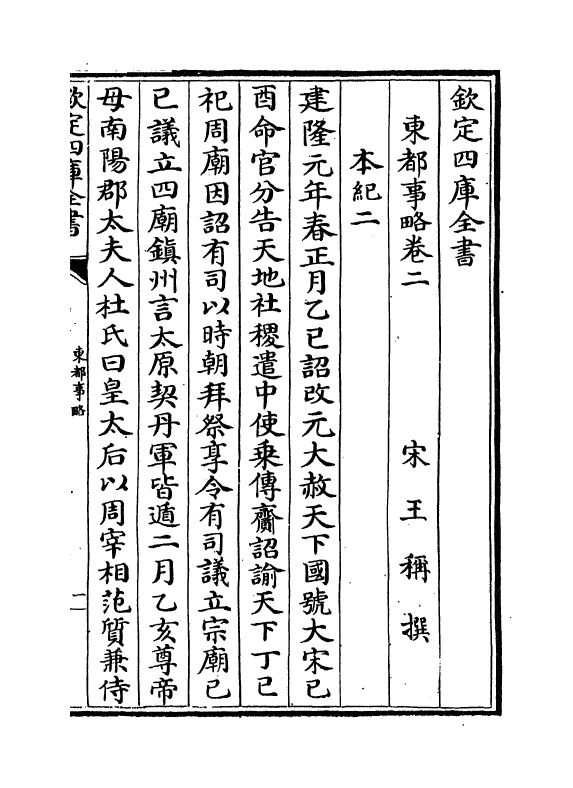 欽定四庫全書
東都事略卷二
宋王稱撰
本紀二
建隆元年春正月乙已詔改元大赦天下國號大宋已
酉命官分告天地社稷遣中使乗傳齎詔諭天下丁已
祀周廟因詔有司以時朝拜祭享令有司議立宗廟已
已議立四廟鎮州言太原契丹軍皆遁二月乙亥尊帝
母南陽郡太夫人杜氏曰皇太后以周宰相范質兼侍
欽定四庫全書
東都事略